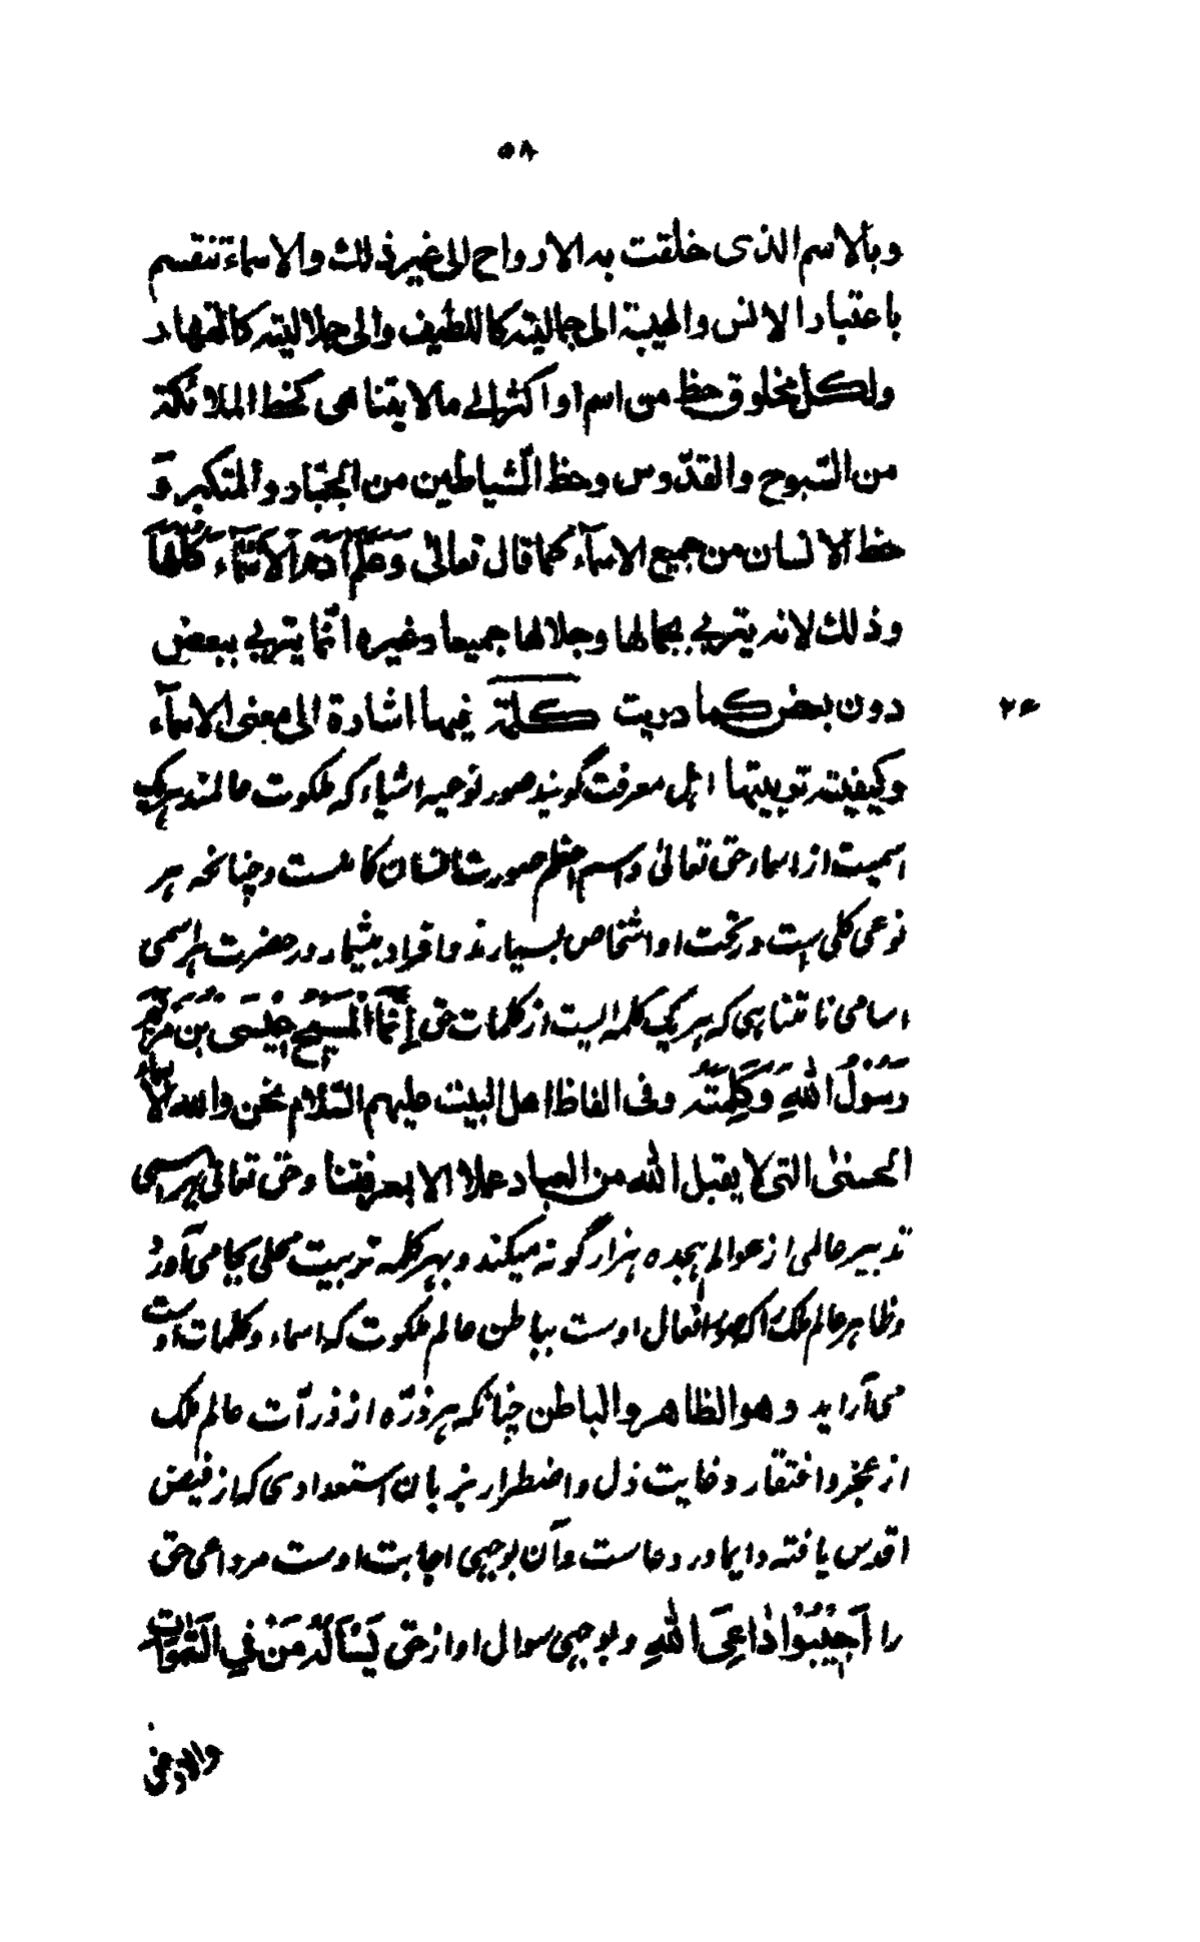 ٥٨
وبالاسم الذی خلقت به الارواح الی غیر ذلك والاسماء تنقسم
باعتبار الانس والهیبة الی جمالیته کاللطیف والی جلالیته کالقهار
ولکل مخلوق حظ من اسم او اکثر الی ما لا یتناهی کحظ الملائکة
من السّبوح والقدّوس وحظ الشّیاطین من الجبّار والمتکبر و
حظ الانسان من جمیع الاسمآء کما قال تعالیٰ وَعَلَّمَ اٰدَمَ الْاَسْمَآءَ کُلَّهَا
وذلك لانه یتربی بجمالها وجلالها جمیعا وغیره انّما یتربی ببعض
دون بعض کما دریت کلمة فیها اشارة الی معنی الاسمآء
۲۶
وکیفیته تربیتها اهل معرفت گویند صور نوعیه اشیاء که ملکوت عالمند هر یک
اسمیست از اسماء حق تعالیٰ واسم اعظم صورت انسان کاملست وچنانچه هر
نوعی کلی هست در تحت او اشخاص بسیارند وافراد بیشمار در حضرت هر اسمی
اسامی نامتناهی که هر یک کلمه ایست از کلمات حق اِنَّمَا الْمَسِیْحُ عِیْسَی بْنُ مَرْیَمَ
رَسُوْلُ اللهِ وَکَلِمَتُهٗ وفی الفاظ اهل البیت علیهم السّلام نحن والله الاسماء
الحسنیٰ التی لا یقبل الله من العباد عملا الا بمعرفتنا وحق تعالیٰ بهر اسمی
تدبیر عالمی از عوالم هیجده هزار گونه میکند وبهر کلمه تربیت محلی بجا می آورد
وظاهر عالم ملک را که صور افعال اوست بباطن عالم ملکوت که اسماء وکلمات اوست
می آراید وهو الظاهر والباطن چنانکه هر ذرّه از ذرّات عالم ملک
از عجز وافتقار وغایت ذل واضطرار بزبان استعدادی که از فیض
اقدس یافته دایما در دعاست وآن بوجهی اجابت اوست مر داعی حق
را اَجِیْبُوْا دَاعِیَ اللهِ وبوجهی سوال او از حق یَسْاَلُهٗ مَنْ فِی السَّمٰوَاتِ
والارض